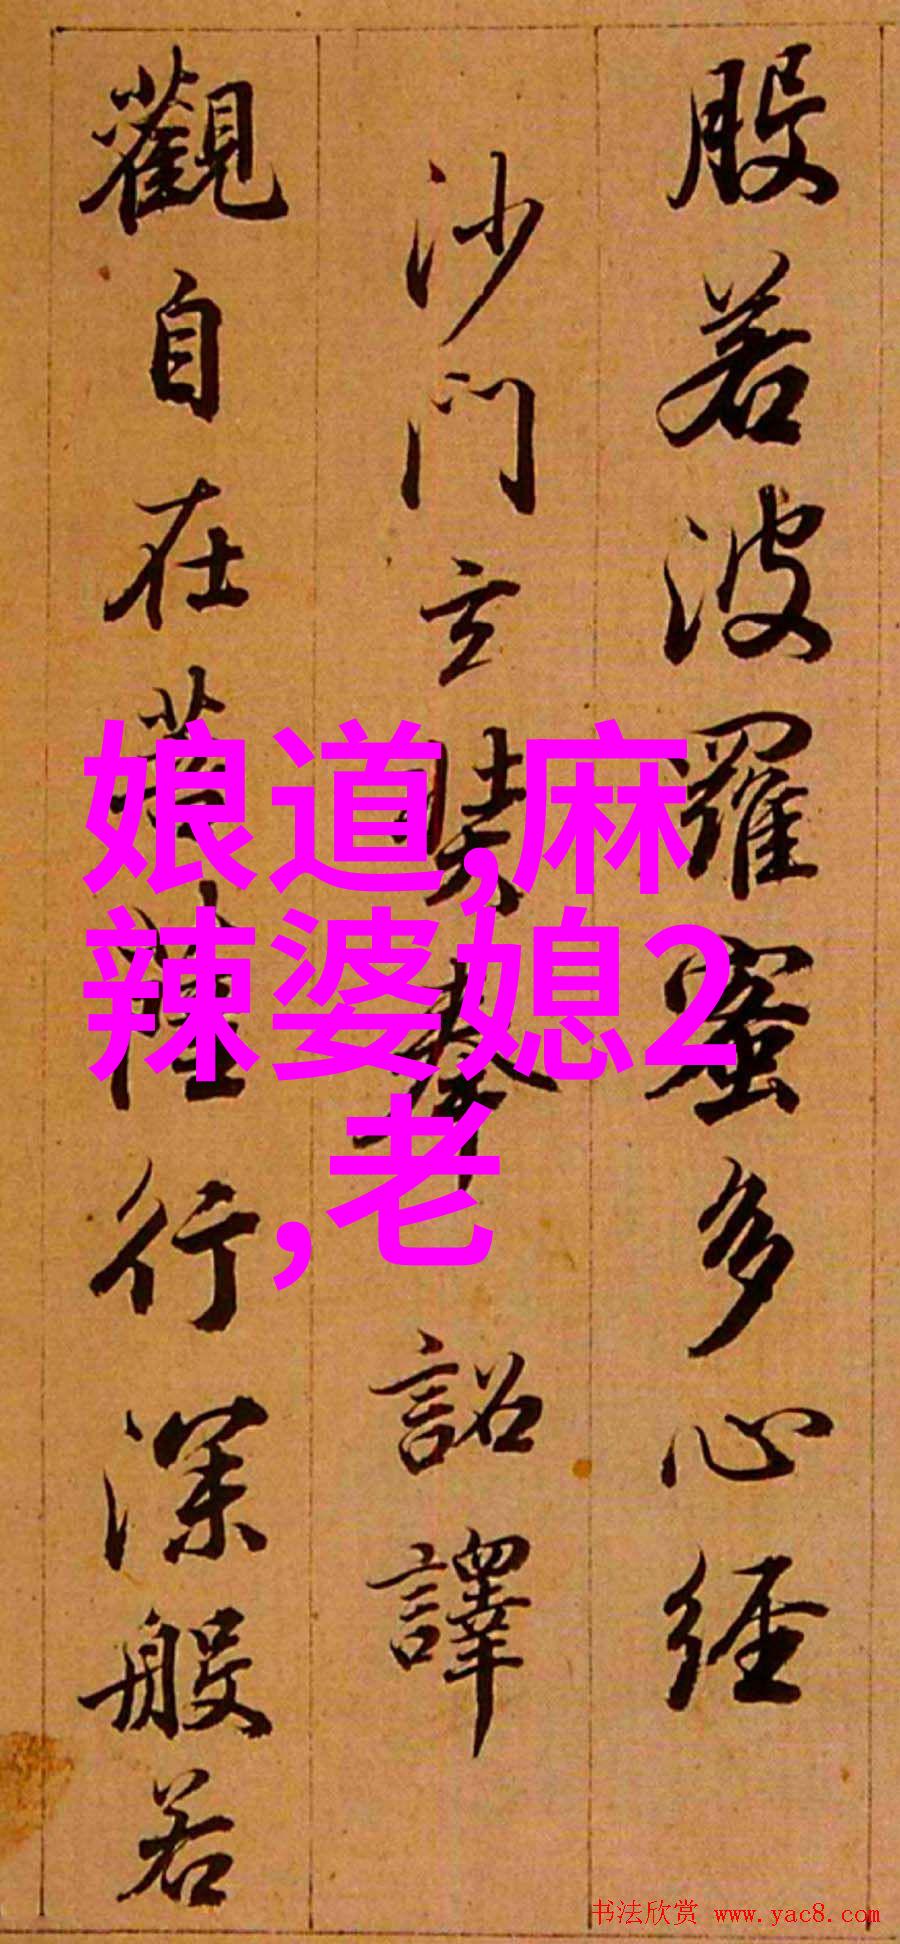 般若波羅蜜多心経
沙門玄奘奉詔譯
觀自在菩薩行深般若
娘道,麻
辣婆媳2
,老
书法欣赏 www.yac8.com